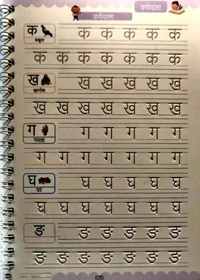 वर्णमाला
वर्णमाला
क
कबूतर
क क क क क क
क क क क क क क क
ख
खरगोश
ख ख ख ख ख
ख ख ख ख ख ख ख
ग
गमला
ग ग ग ग ग
ग ग ग ग ग ग ग
घ
घर
घ घ घ घ घ
घ घ घ घ घ घ घ
ङ
ङ ङ ङ ङ ङ
ङ ङ ङ ङ ङ ङ ङ